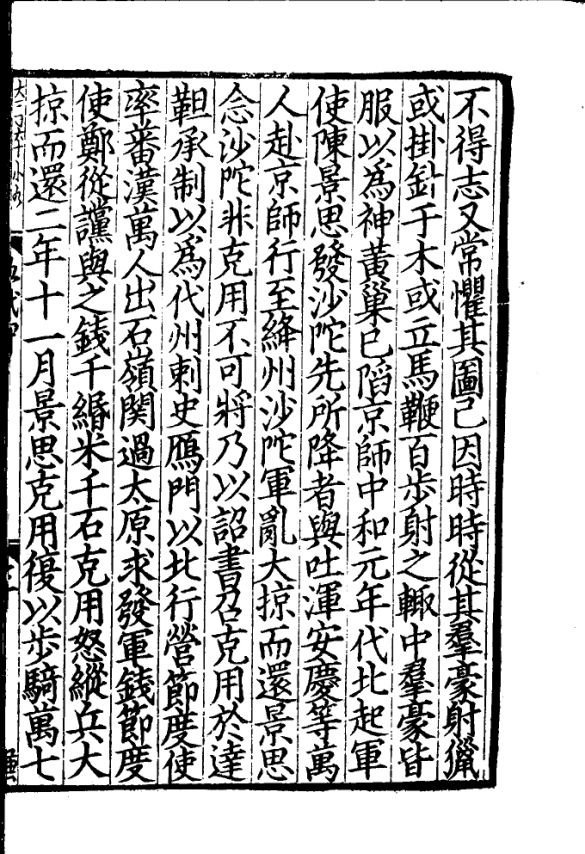 不得志又常懼其圖己因時時從其羣豪射獵
或掛針于木或立馬鞭百步射之輙中羣豪皆
服以爲神黃巢已陷京師中和元年代北起軍
使陳景思發沙陀先所降者與吐渾安慶等萬
人赴京師行至絳州沙陀軍亂大掠而還景思
念沙陀非克用不可將乃以詔書召克用於達
靼承制以爲代州刺史鴈門以北行營節度使
率蕃漢萬人出石嶺関過太原求發軍錢節度
使鄭從讜與之錢千緡米千石克用怒縱兵大
掠而還二年十一月景思克用復以步騎萬七